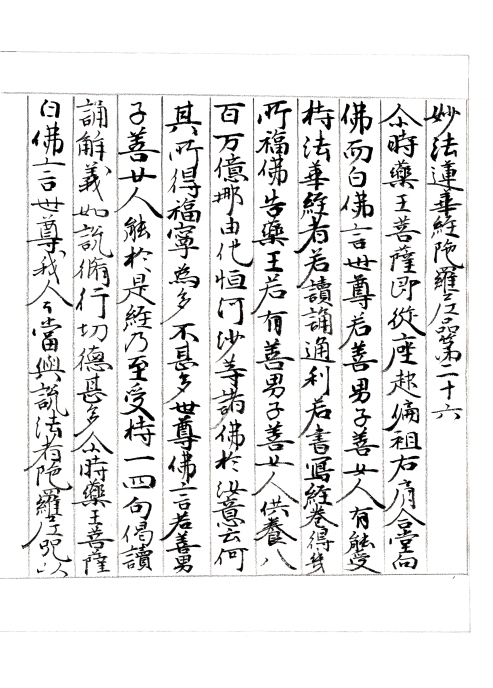 妙法蓮華經陀羅尼品第二十六
尒時藥王菩薩即從座起偏袒右肩合掌向
佛而白佛言世尊若善男子善女人有能受
持法華經者若讀誦通利若書寫經卷得幾
所福佛告藥王若有善男子善女人供養八
百万億那由他恒河沙等諸佛於汝意云何
其所得福寧為多不甚多世尊佛言若善男
子善女人能於是經乃至受持一四句偈讀
誦解義如說脩行功德甚多尒時藥王菩薩
白佛言世尊我今當與說法者陀羅尼呪以